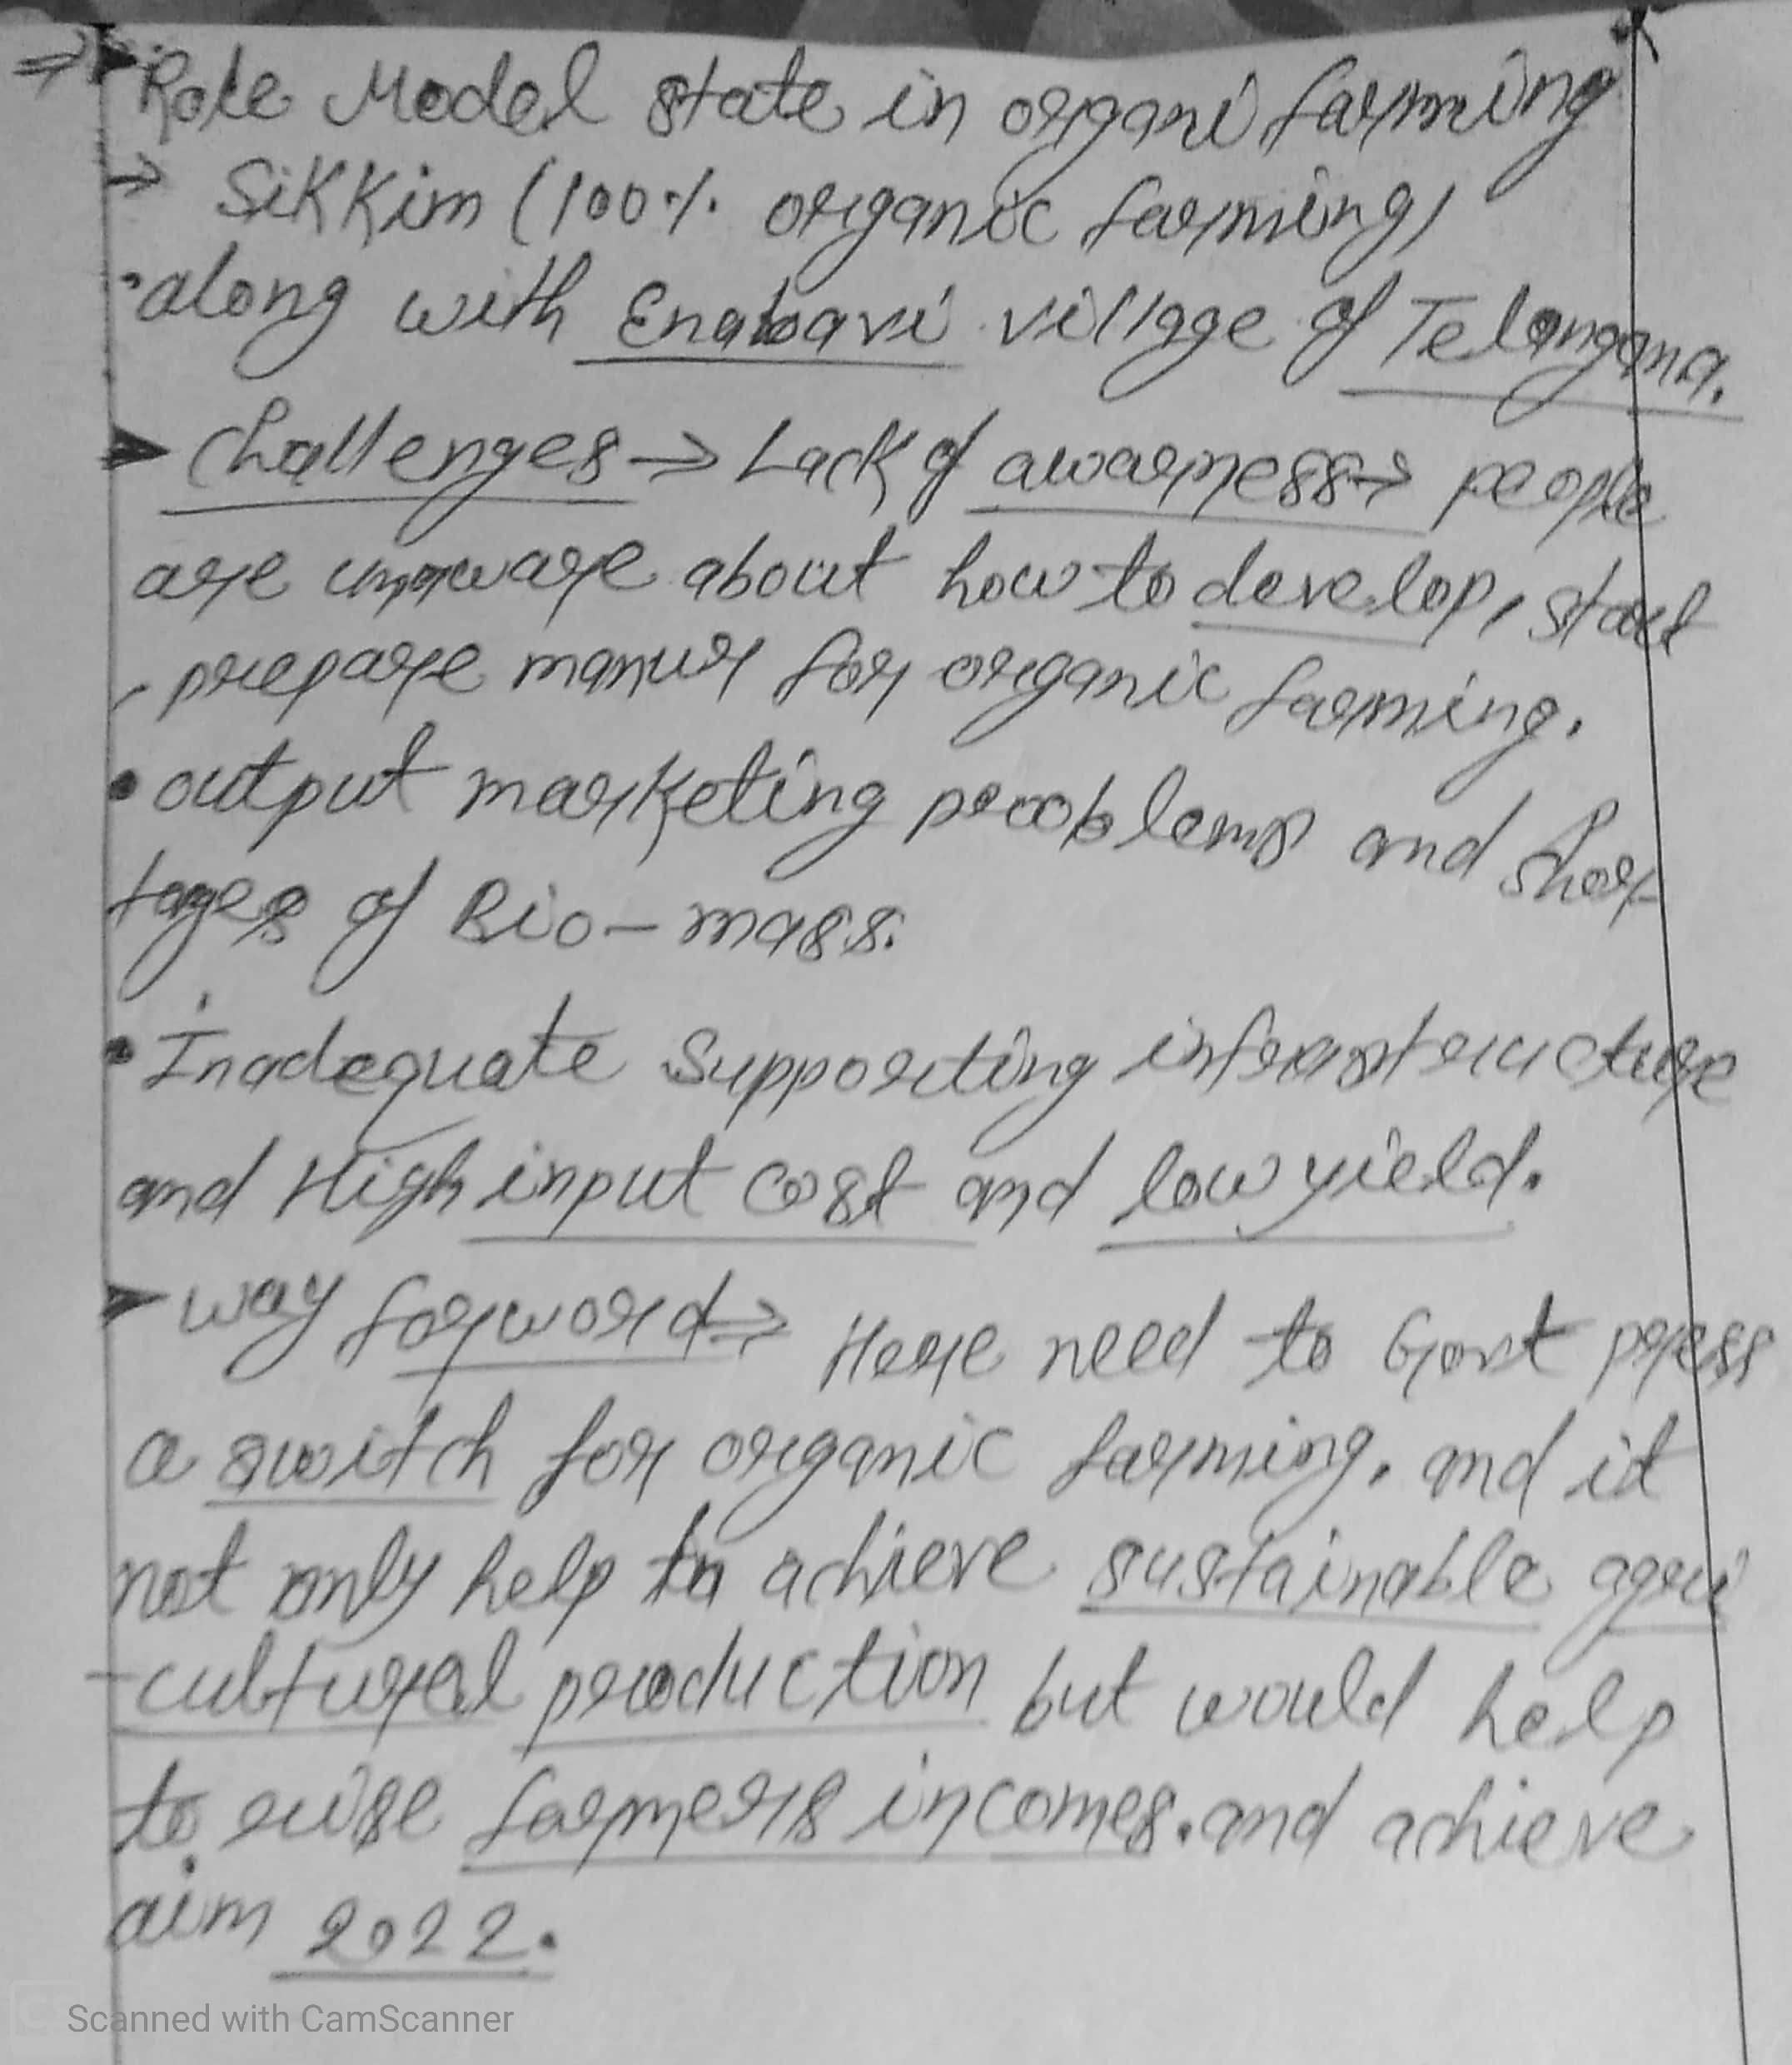 ⇒ ➤ Role Model state in organi farming
→ SiKKim (100% organic farming)
• along with Enabavi village of Telangana.
➤ Challenges → Lack of awarness → people
are unaware about how to develop, start
, prepare manur for organic farming.
• output marketing problems and shor-
tages of Bio-mass.
• Inadequate Supporting infrastructure
and High input cost and low yield.
➤ way forword ⇒ Here need to Govt press
a switch for organic farming, and it
not only help to achieve sustainable agri
-cultural production but would help
to rise farmers incomes. and achieve
aim 2022.
Scanned with CamScanner